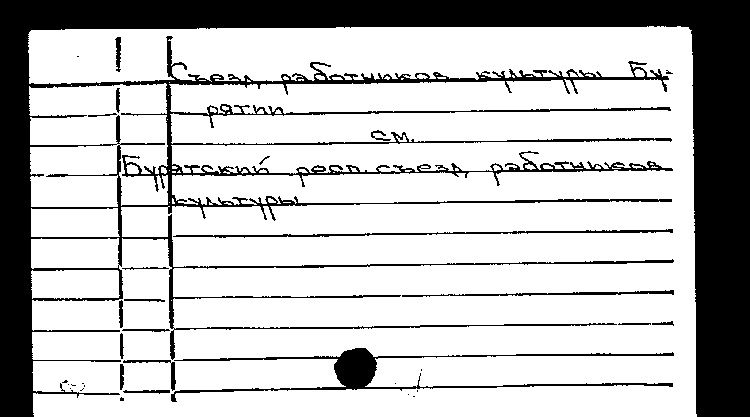 Съезд работников культуры Бу-
рятии
см.
Бурятский респ. съезд работников
культуры